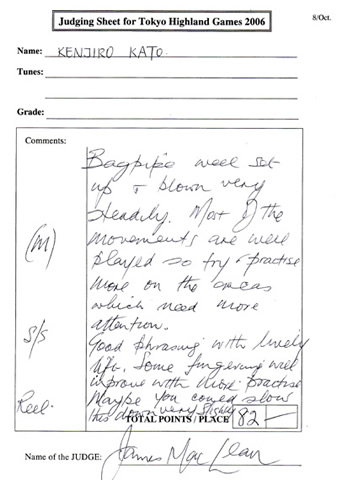 8/Oct.
Judging Sheet for Tokyo Highland Games 2006
Name: KENJIRO KATO
Tunes:
Grade:
Comments:
Bagpipe well set
up & blown very
steadily. Most of the
(M) movements are well
played so try & practise
more on the areas
which need more
attention.
S/S Good phrasing with lively
lift. Some fingering will
improve with more practise
Reel. Maybe you could slow
this down very slightly
TOTAL POINTS / PLACE 82 —
Name of the JUDGE: James MacLean